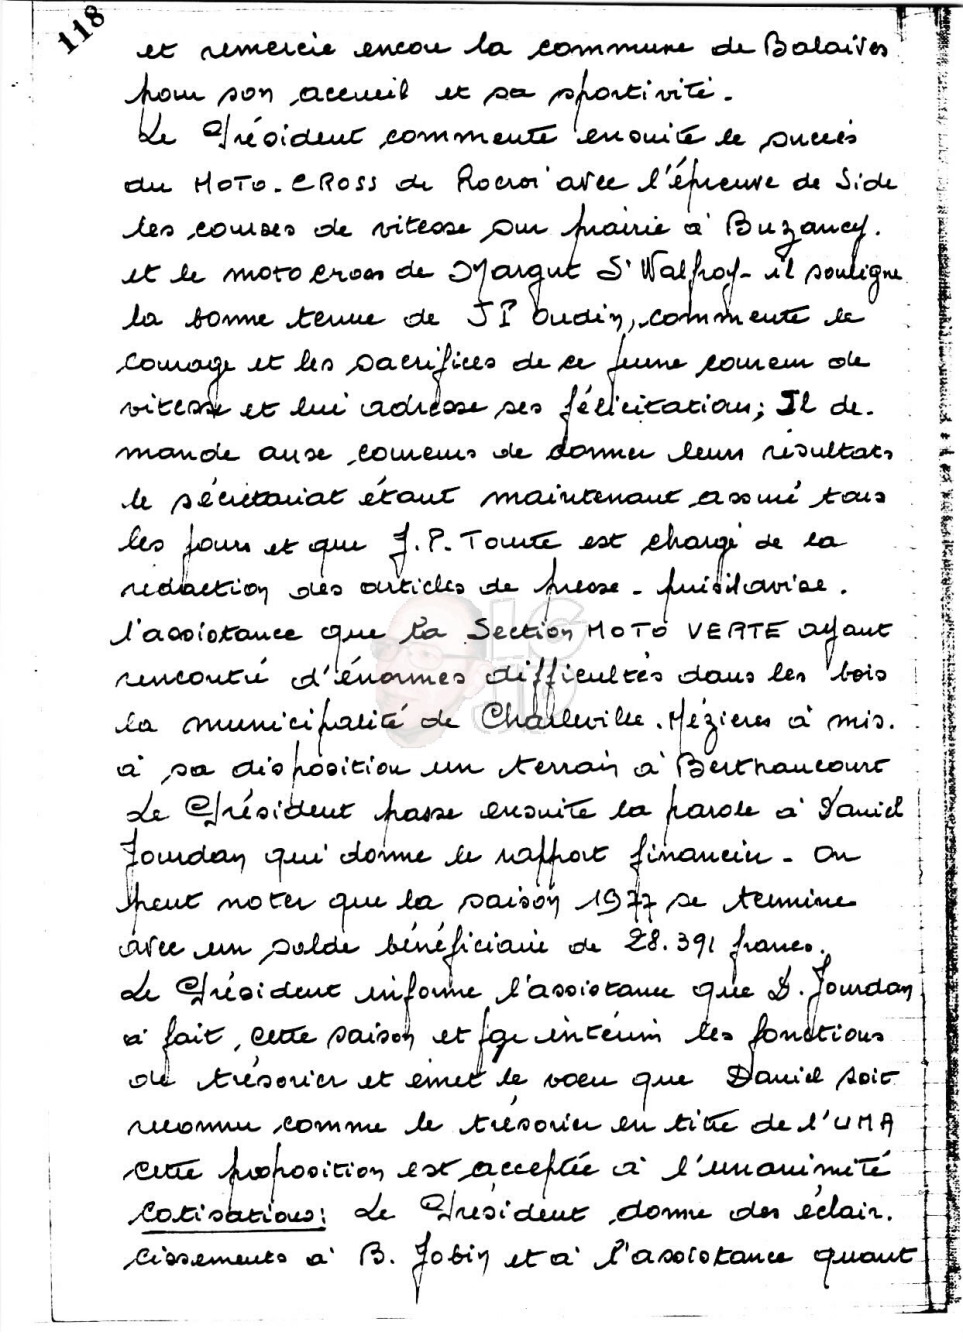 118
et remercie encore la commune de Balaives
pour son accueil et sa sportivité.
Le Président commente ensuite le succès
du MOTO-CROSS de Rocroi avec l'épreuve de Side
les courses de vitesse sur prairie à Buzancy.
et le moto cross de Margut St Walfroy - il souligne
la bonne tenue de JP Oudin, commente le
courage et les sacrifices de ce jeune coureur de
vitesse et lui adresse ses félicitations; Il de-
mande aux coureurs de donner leurs résultats
le sécrétariat étant maintenant assuré tous
les jours et que J.P. Tourte est chargé de la
rédaction des articles de presse - puis il avise.
l'assistance que la Section MOTO VERTE ayant
rencontré d'énormes difficultés dans les bois
la municipalité de Charleville-Mézières à mis.
à sa disposition un terrain à Berthaucourt
Le Président passe ensuite la parole à Daniel
Jourdan qui donne le rapport financier - On
peut noter que la saison 1977 se termine
avec un solde bénéficiaire de 28.391 francs.
Le Président informe l'assistance que D. Jourdan
à fait, cette saison et par intérim les fonctions
de trésorier et émet le voeu que Daniel soit
reconnu comme le trésorier en titre de l'UMA
cette proposition est acceptée à l'unanimité
Cotisations: Le Président donne des éclair-
cissements à B. Jobin et à l'assistance quant